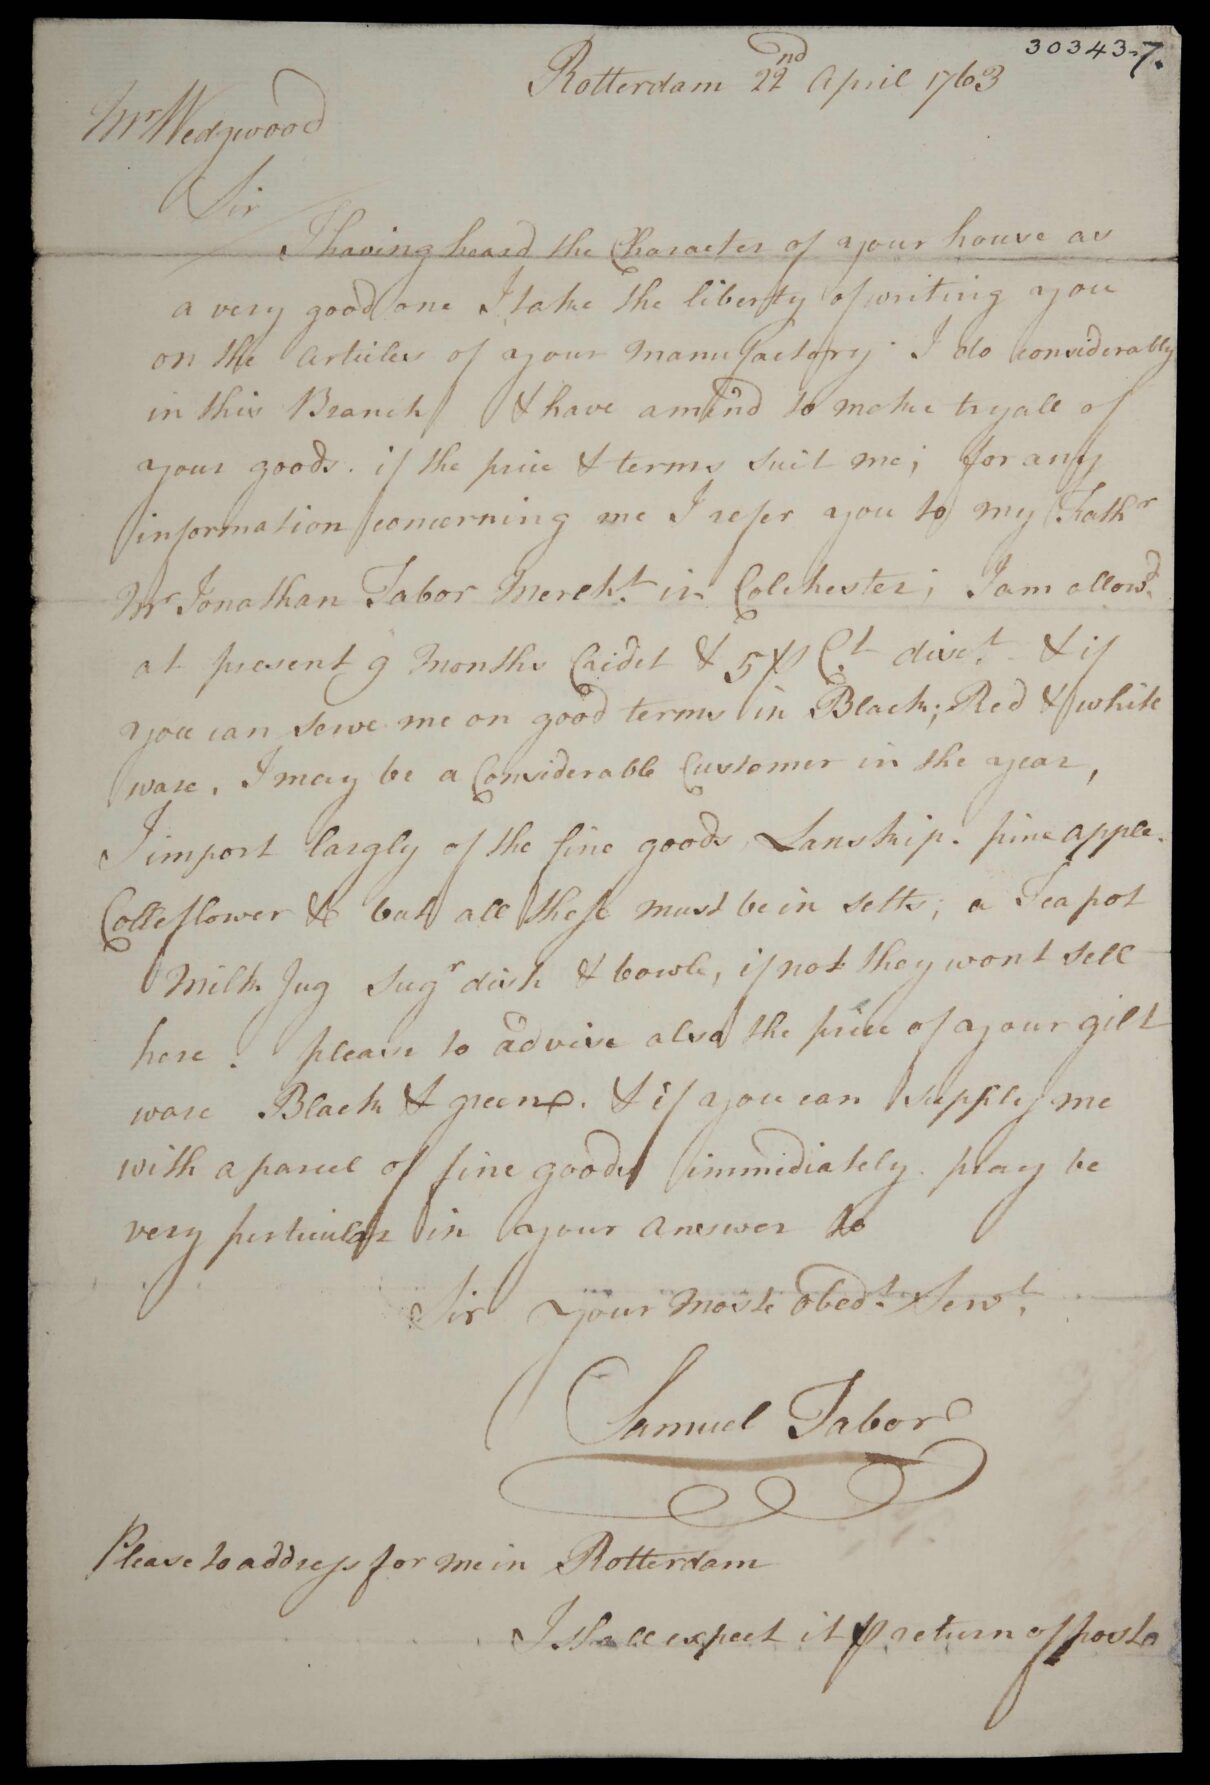 30343-7.
Rotterdam 22nd April 1763
Mr Wedgwood
Sir
I having heard the Character of your house as
a very good one I take the liberty of writing you
on the articles of your manufactory. I do considerably
in this Branch & have amind to make tryall of
your goods. if the price & terms suit me; for any
information concerning me I refer you to my Fathr
Mr Jonathan Tabor Mercht. in Colchester; I am allowd.
at present 9 Months Cridet & 5 ⅌ Ct. disct. & if
you can serve me on good terms in Black; Red & white
ware. I may be a Considerable Customer in the year,
I import largly of the fine goods, Lanskip. pine apple.
Colleflower &c but all these must be in setts; a Teapot
Milk Jug Sugr dish & bowls, if not they wont sell
here. please to advise also the price of your gilt
ware Black & green. & if you can supply me
with a parcel of fine goods immidiately. pray be
very perticular in your answer to
Sir your moste obedt. Servt.
Samuel Tabor
Please to address for me in Rotterdam
I shall expect it ⅌ return of poste